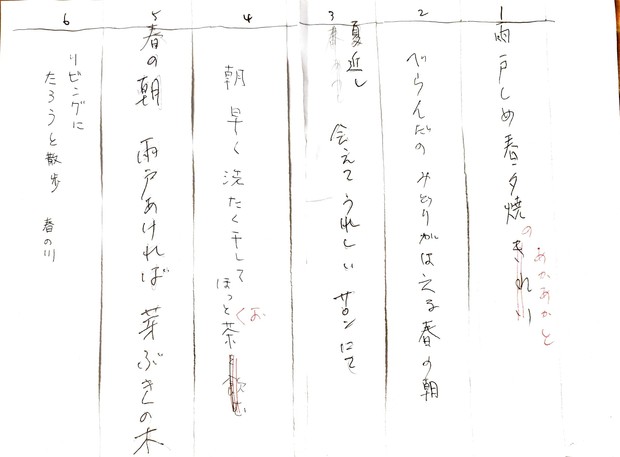 1
雨戸しめ春夕焼のきれい
あかあかと
2
べらんだの みどりがはえる春の朝
3
夏近し 会えてうれしい サロンにて
4
朝早く洗たく干して
ほっと茶を飲む
5
春の朝 雨戸あければ 芽ぶきの木
6
リビングに
たろうと散歩 春の川